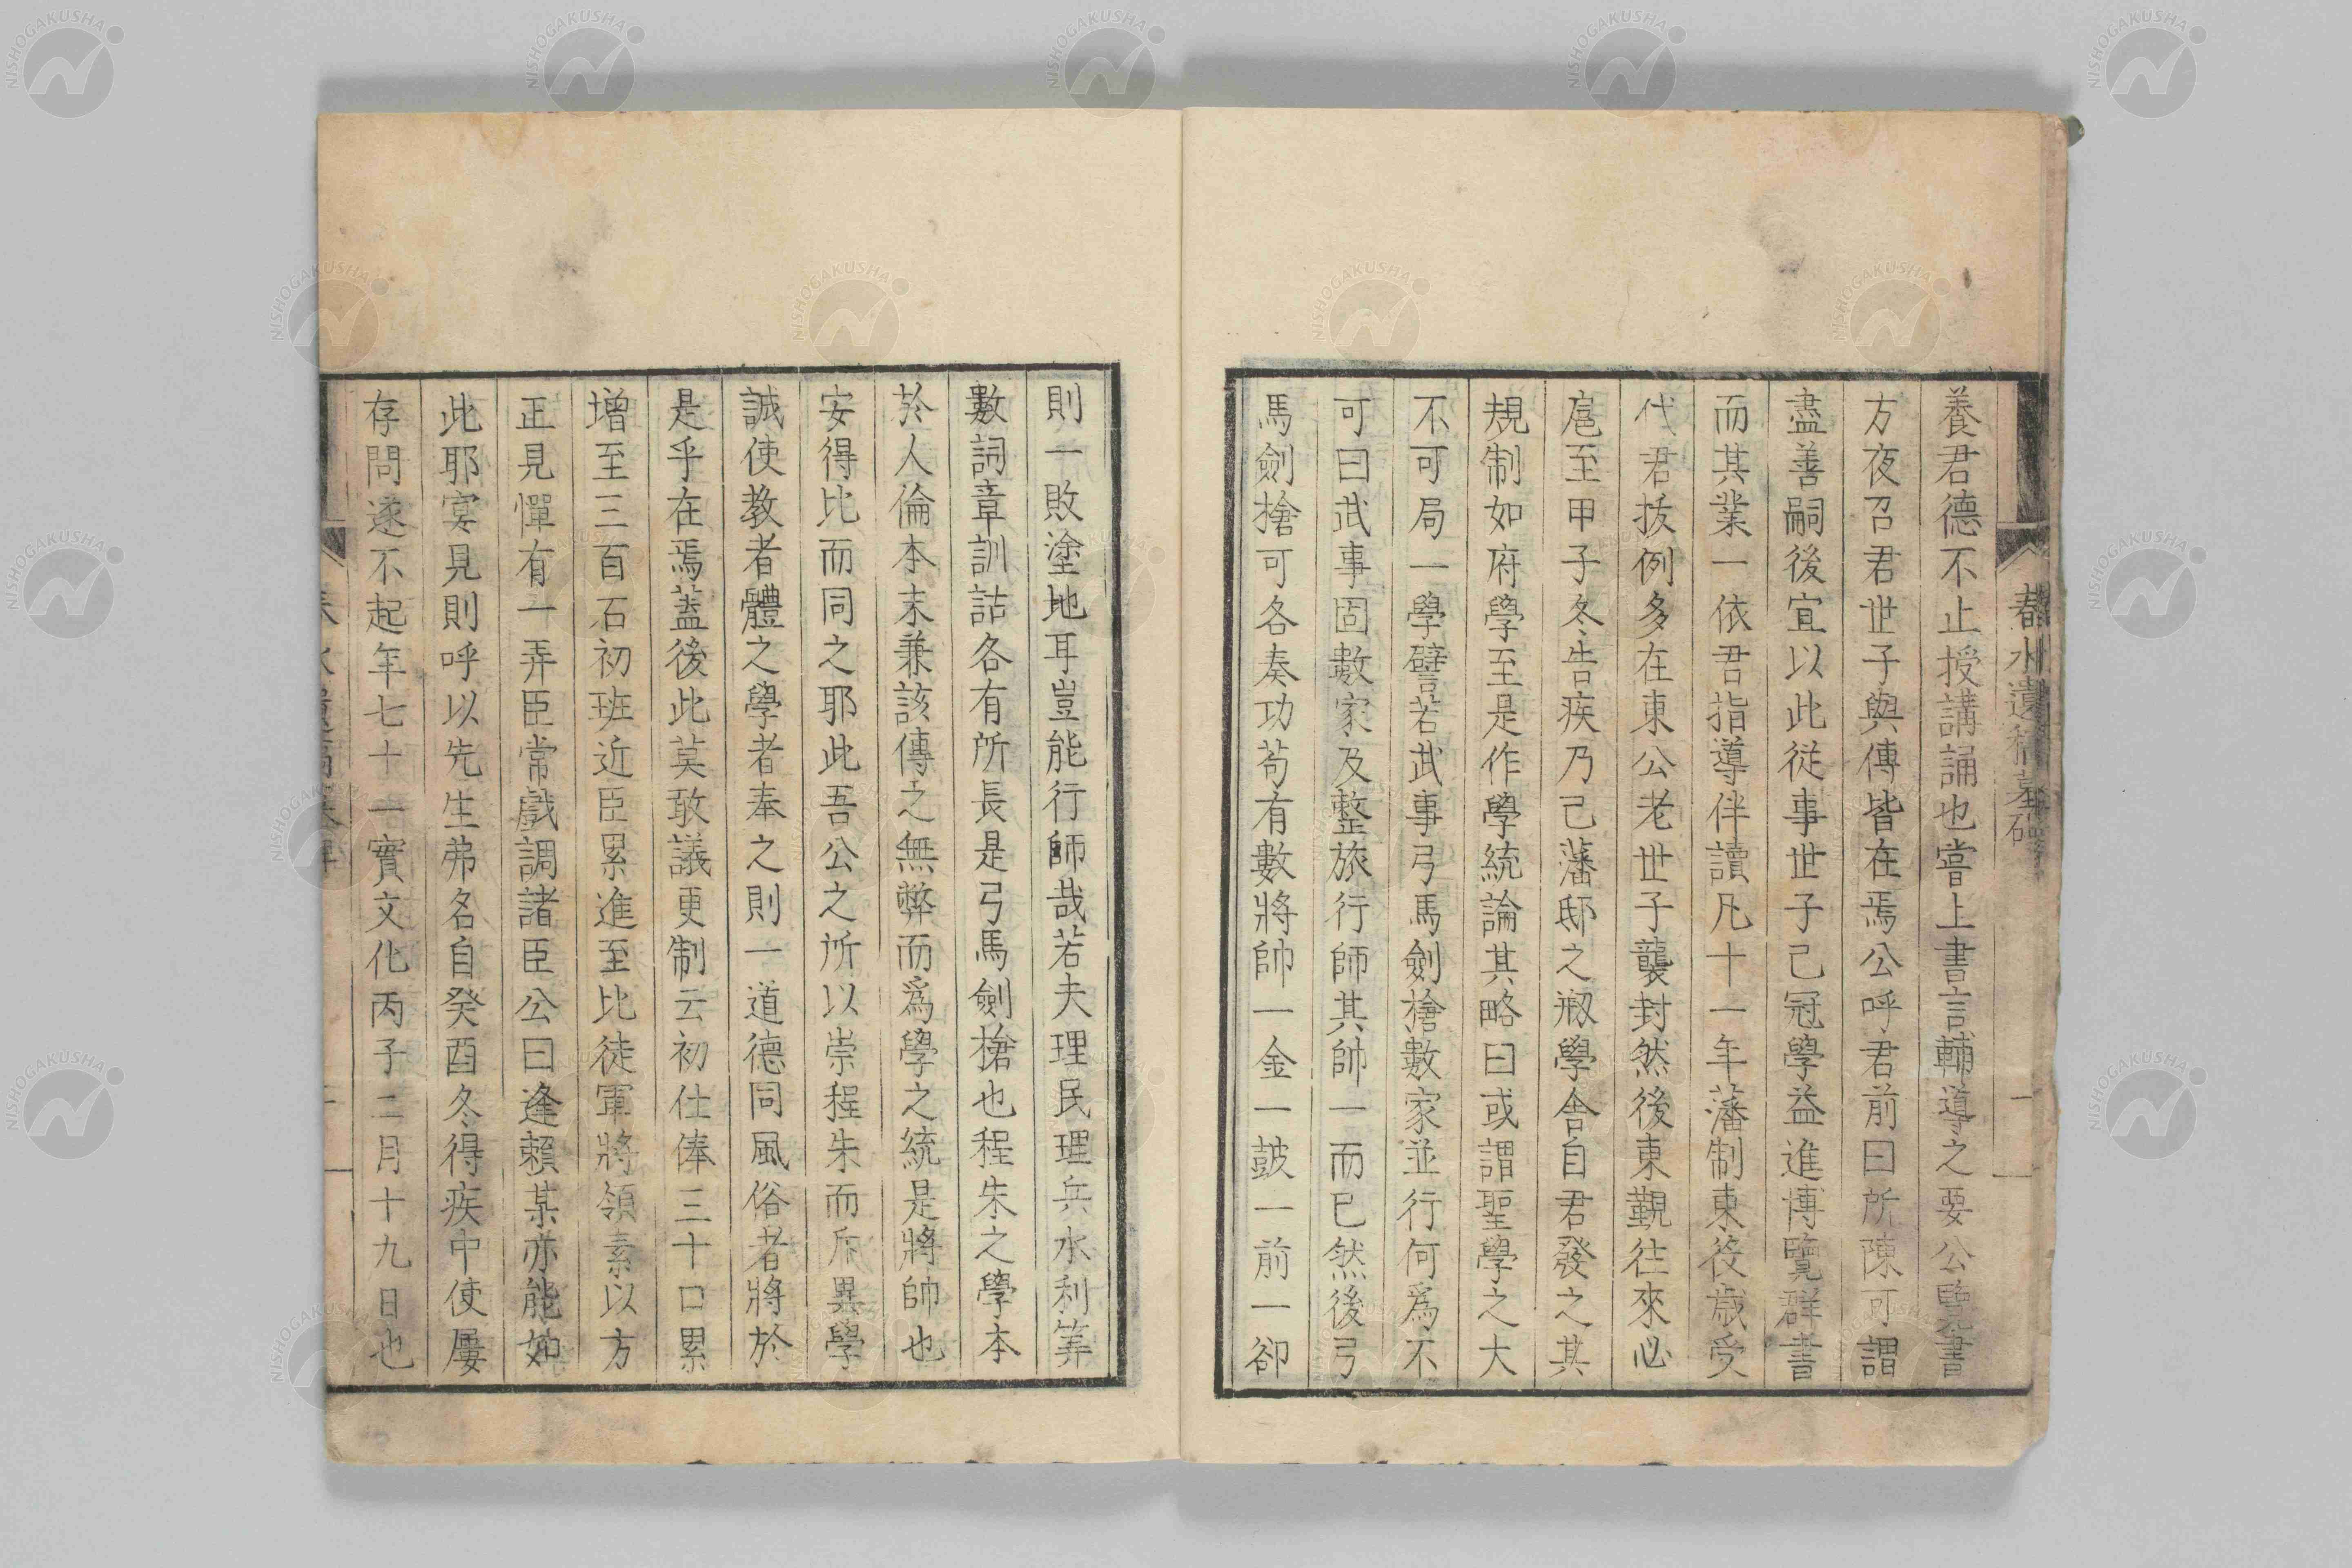 春水遺稿墓碑
養君德不止授講誦也嘗上書言輔導之要公覽書
方夜召君世子與傅皆在焉公呼君前曰所陳可謂
盡善嗣後宜以此從事世子已冠學益進博覽群書
而其業一依君指導伴讀凡十一年藩制東役歲受
代君拔例多在東公老世子襲封然後東覲往來必
扈至甲子冬告疾乃已藩邸之剏學舍自君發之其
規制如府學至是作學統論其略曰或謂聖學之大
不可局一學譬若武事弓馬劍槍數家並行何爲不
可曰武事固數家及整旅行師其帥一而已然後弓
馬劍槍可各奏功苟有數將帥一金一鼓一前一卻
則一敗塗地耳豈能行師哉若夫理民理兵水利筭
數詞章訓詁各有所長是弓馬劍槍也程朱之學本
於人倫本末兼該傳之無弊而爲學之統是將帥也
安得比而同之耶此吾公之所以崇程朱而斥異學
誠使教者體之學者奉之則一道德同風俗者將於
是乎在焉蓋後此莫敢議更制云初仕俸三十口累
增至三百石初班近臣累進至比徒軍將領素以方
正見憚有一弄臣常戲調諸臣公曰逢賴某亦能如
此耶宴見則呼以先生弗名自癸酉冬得疾中使屢
存問遂不起年七十一實文化丙子二月十九日也